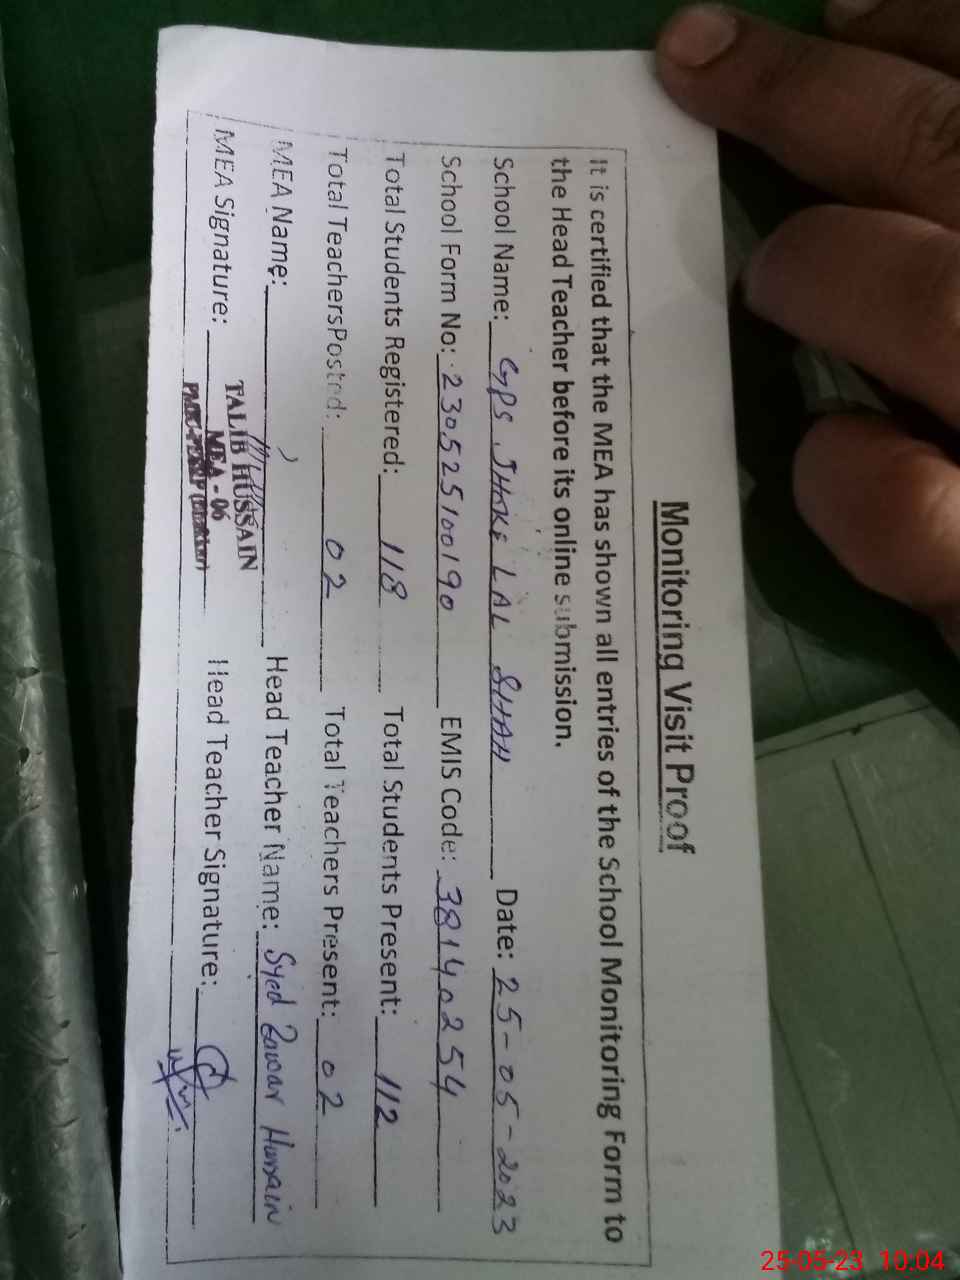 Monitoring Visit Proof
It is certified that the MEA has shown all entries of the School Monitoring Form to
the Head Teacher before its online submission.
School Name: GPS JHOKE LAL SHAH Date: 25-05-2023
School Form No: 230525100190 EMIS Code: 38140254
Total Students Registered: 118 Total Students Present: 112
Total TeachersPosted: 02 Total Teachers Present: 02
MEA Name: Head Teacher Name: Syed Zawar Hussain
TALIB HUSSAIN
MEA Signature: Head Teacher Signature:
MEA - 06
25-05-23 10:04